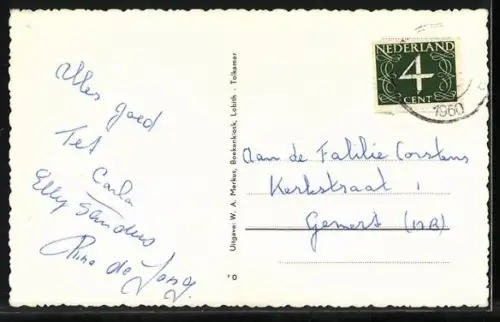 Alles goed
Tet
Carla
Elly Sanders
Rina de Jong
Uitgave: W. A. Merkus, Boekenkiosk, Lobith - Tolkamer
NEDERLAND
4
CENT
1960
Aan de Falilie Corstens
Kerkstraat 1
Gemert (NB)